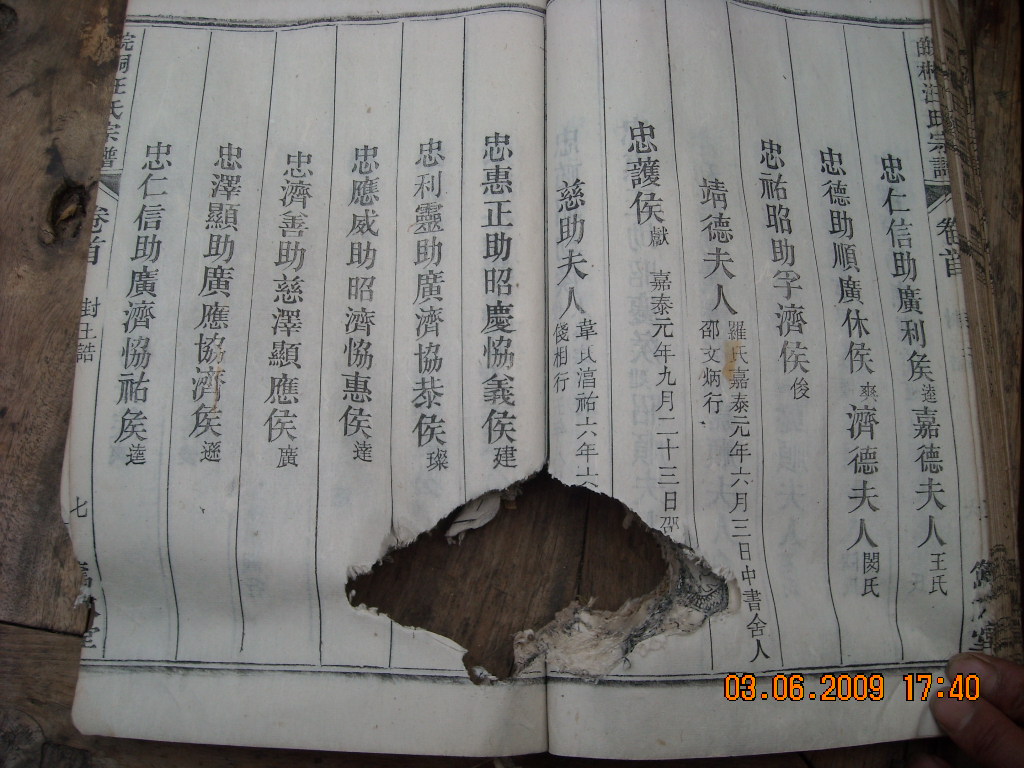 汪氏宗譜
卷首
忠仁信助廣利矦逵嘉德夫人王氏
忠德助順廣休侯爽濟德夫人閔氏
忠祐昭助孚濟侯俊
靖德夫人羅氏嘉泰元年六月三日中書舍人
邵文炳行
忠護侯獻嘉泰元年九月二十三日
慈助夫人韋氏淳祐六年六
行
忠惠正助昭慶恊義侯建
忠利靈助廣濟協恭侯璨
忠應威助昭濟恊惠侯達
忠濟善助慈澤顯應侯廣
忠澤顯助廣應協濟矦遜
忠仁信助廣濟恊祐矦逵
皖桐汪氏宗譜
卷首
封王誥
七
堂
03.06.2009 17:40